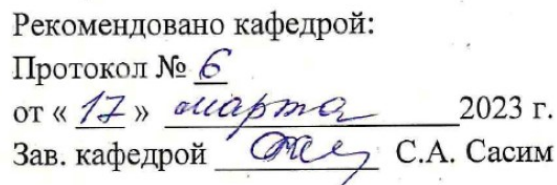 Рекомендовано кафедрой:
Протокол № 6
от « 17 » марта 2023 г.
Зав. кафедрой С.А. Сасим